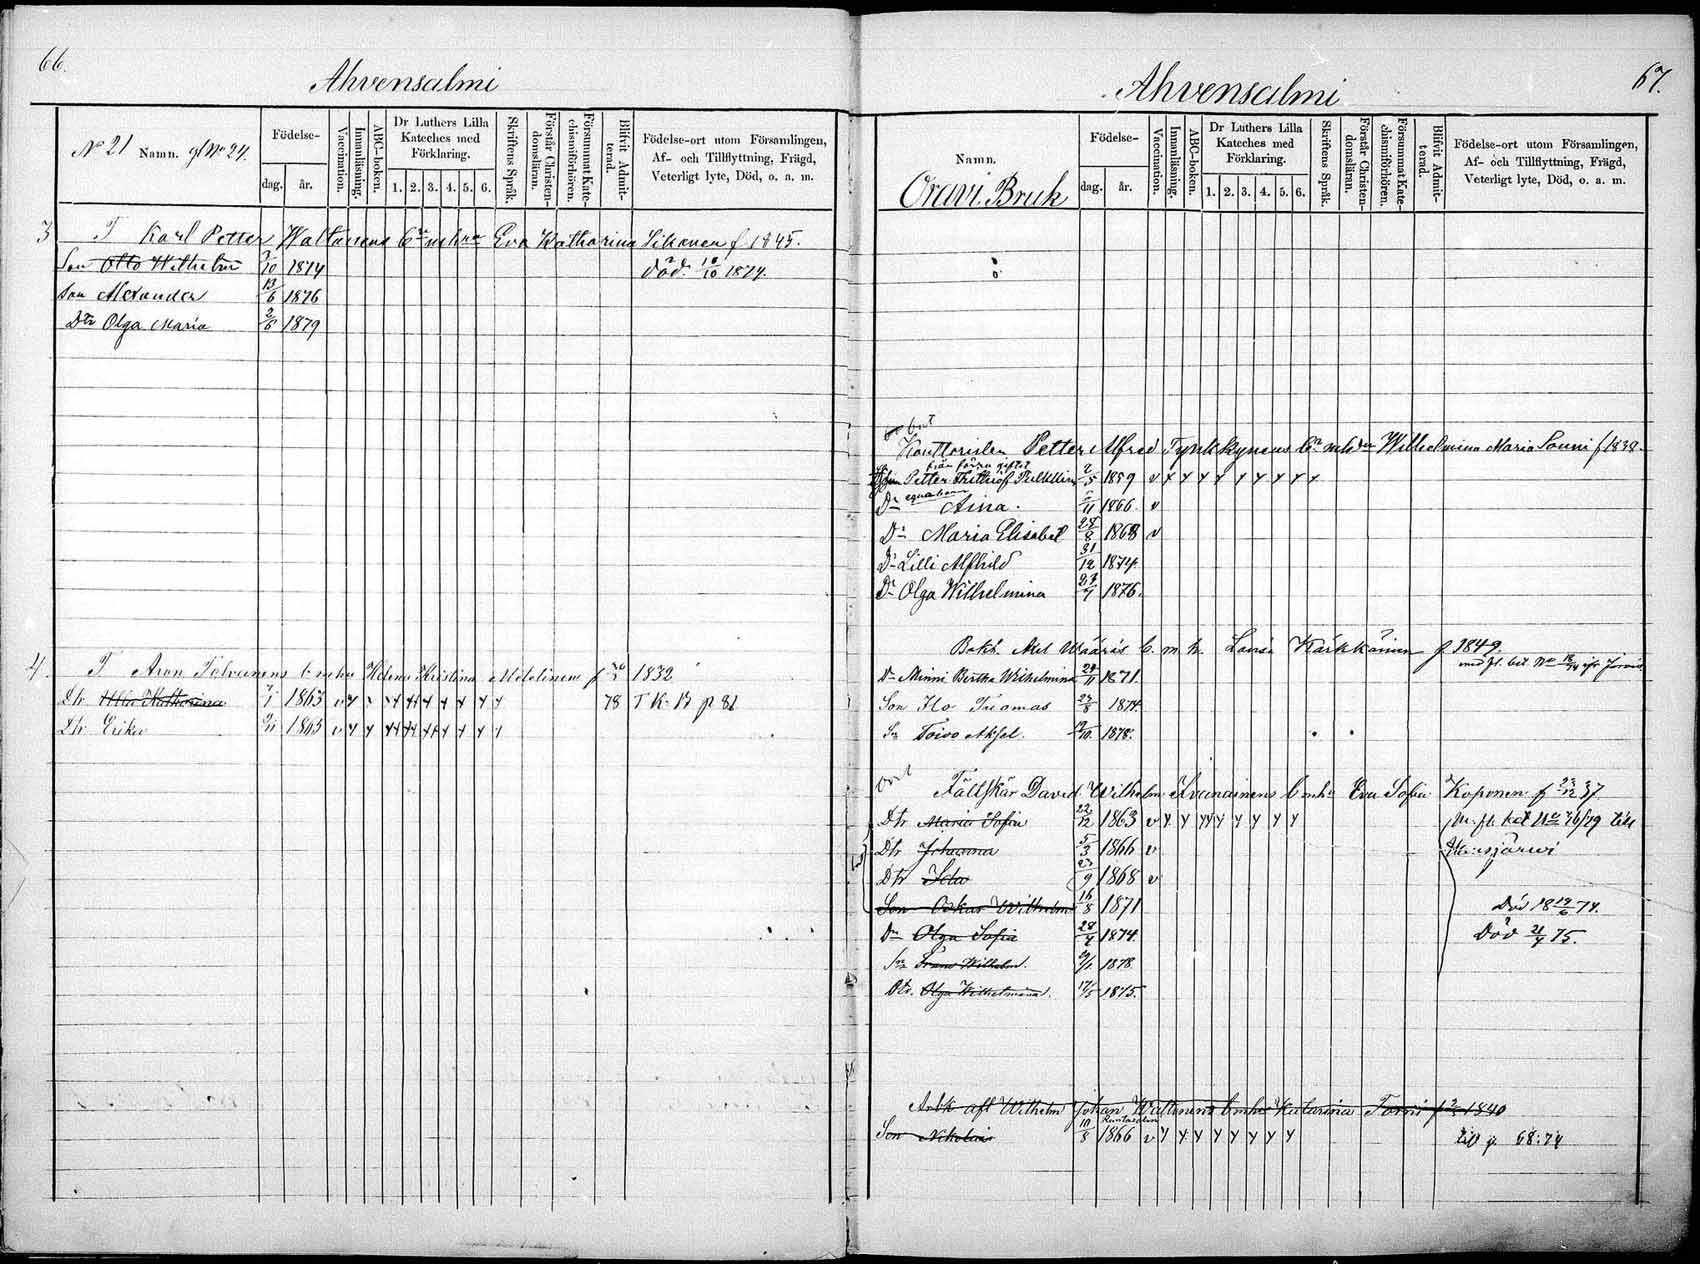 66.
Ahvensalmi
No 21 Namn. gl No 24.
Födelse-
dag. år.
Vaccination.
Innanläsning.
ABC-boken.
Dr Luthers Lilla Kateches med Förklaring.
1. 2. 3. 4. 5. 6.
Skriftens Språk.
Förstår Christendomsläran.
Försummat Katechismiförhören.
Blifvit Admitterad.
Födelse-ort utom Församlingen,
Af- och Tillflyttning, Frägd,
Veterligt lyte, Död, o. a. m.
3 T Karl Petter Waltonens Eva Katharina Sikanen f 1845.
Son Otto Wilhelm 7/10 1874 död. 18/10 1874.
Son Alexander 13/6 1876
Dtr Olga Maria 2/6 1879
4. T Aron Tolvanens Helena Kristina f 1832
Dtr Ulla Katharina 1863 v 78 T K. B p 81
Dtr Erika 1865 v
67.
Ahvensalmi
Namn.
Oravi Bruk
Födelse-
dag. år.
Vaccination.
Innanläsning.
ABC-boken.
Dr Luthers Lilla Kateches med Förklaring.
1. 2. 3. 4. 5. 6.
Skriftens Språk.
Förstår Christendomsläran.
Försummat Katechismiförhören.
Blifvit Admitterad.
Födelse-ort utom Församlingen,
Af- och Tillflyttning, Frägd,
Veterligt lyte, Död, o. a. m.
Petter Alfred Tynkkynens Wilhelmina Maria Sonni f 1838.
från förra giftet
Petter Frithiof 2/5 1859 v
Dr Aina. 1866. v
Dr Maria Elisabet 28/8 1868 v
Dr Lilli Alfhild 31/12 1874.
Dr Olga Wilhelmina 1876.
Bokh. Axel Wääris h. m. h. Lovisa Kärkkäinen f 1849.
Dr Minni Bertha Wilhelmina 1871.
Son Ilo Tuomas 1874.
Sn Toivo Aksel. 1878.
Fältskär David Wilhelm Eva Sofia Koponen f 23/12 37
Dtr Maria Sofia 22/12 1863 v M. fl. bet No 26/79 till
Dtr Johanna 5/3 1866 v
Dtr Ida 9 1868 v
Son Oskar Wilhelm 16/8 1871 Död 18 19/6 74.
Dr Olga Sofia 28/4 1874. Död 21/4 75.
Sn Frans Wilhelm. 1878
Dtr. Olga Wilhelmina. 17/5 1875.
Arbk afl Wilhelm Johan Waltonens Katarina Torni 1840
Rantasalmi
Son Nikolaus 10/8 1866 v till p. 68. 74